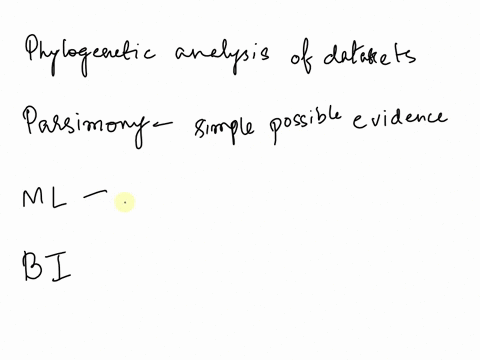 Phylogenetic analysis of datasets
Parsimony - simple possible evidence
ML -
BI